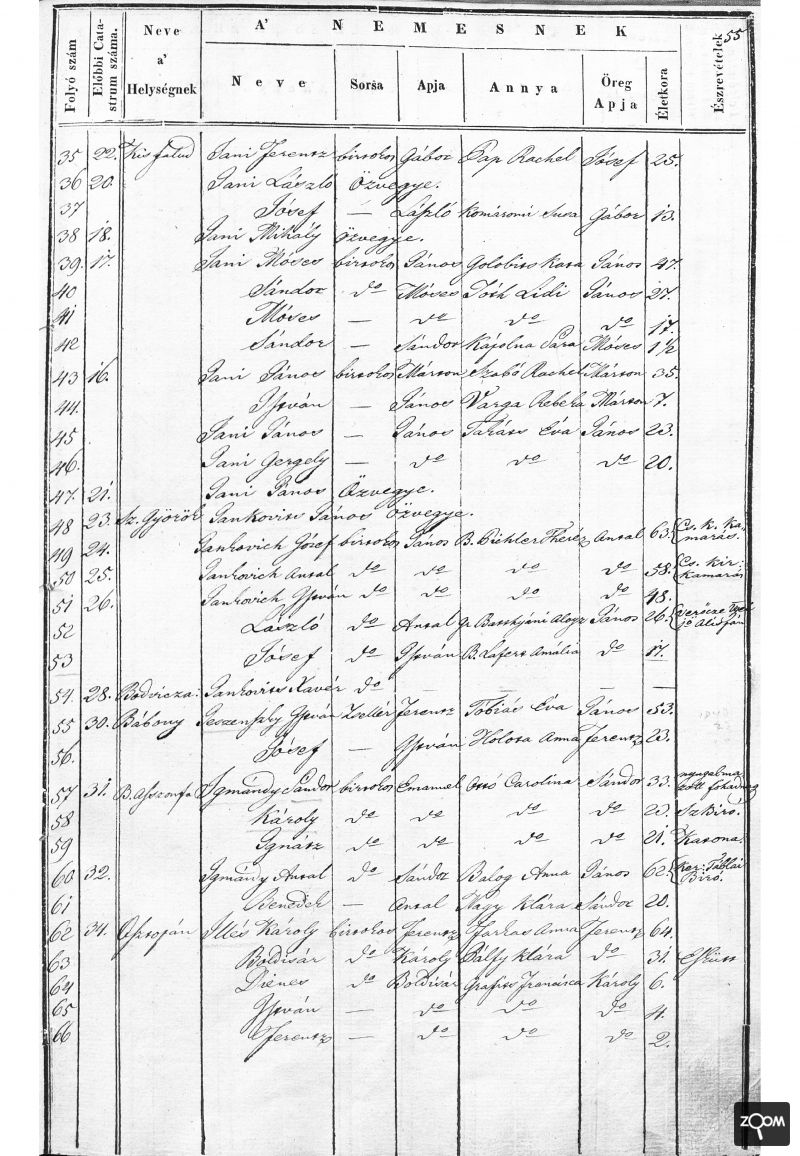 55
Folyó szám
Előbbi Catastrum száma.
Neve a' Helységnek
A' NEMESNEK
Neve
Sorsa
Apja
Annya
Öreg Apja
Életkora
Észrevételek
35 22. Kisfalud Jani Ferentz birtokos Gábor Pap Rachel Jósef 25.
36 20. Jani László Özvegye.
37 Jósef — László Komáromi Susa Gábor 13.
38 18. Jani Mihály Özvegye.
39. 17. Jani Móses birtokos János Kata János 47.
40 Sándor do Móses Tóth Lidi János 27.
41 Móses — do do do 17.
42 Sándor — Sándor Sára Móses 1 1/2
43 16. Jani János birtokos Márton Szabó Rachel Márton 35.
44. István — János Varga Rebeka Márton 7.
45 Jani János — János Takáts Éva János 23.
46. Jani Gergely — do do do 20.
47. 21. Jani János Özvegye.
48 23. Sz. György Jankovits János Özvegye.
49 24. Jankovich József birtokos János B. Pichler Theréz Antal 63. Cs. k. Kamarás.
50 25. Jankovich Antal do do do do 58. Cs. kir: Kamarás
51 26. Jankovich István do do do do 48.
52 László do Antal gr Batthyáni Aloyz János 26. Verőcze
53 Jósef do István B. Amália do 17.
54. 28. Jankovits Xavér do — — — —
55 30. Bábony István Zsellér Ferentz Tóbiás Éva János 53.
56. Jósef — István Holota Anna Ferentz 23.
57 31. Igmándy Sándor birtokos Emanuel Ottó Carolina Sándor 33. nyugalmazott
58 Károly do do do do 22. SzBiró.
59 Ignátz do do do do 21. Katona.
60 32. Igmándy Antal do Sándor Balog Anna János 62. Ker: Táblai Biró.
61 Benedek — Antal Nagy Klára Sándor 20.
62 34. Osztopán Illés Károly birtokos Ferentz Farkas Anna Ferentz 64.
63 Boldisár do Károly Pálfy Klára do 31. Eskütt
64 Dienes do Boldisár Francisca Károly 6.
65 István — do do do 4.
66 Ferentz — do do do 2.
ZOOM